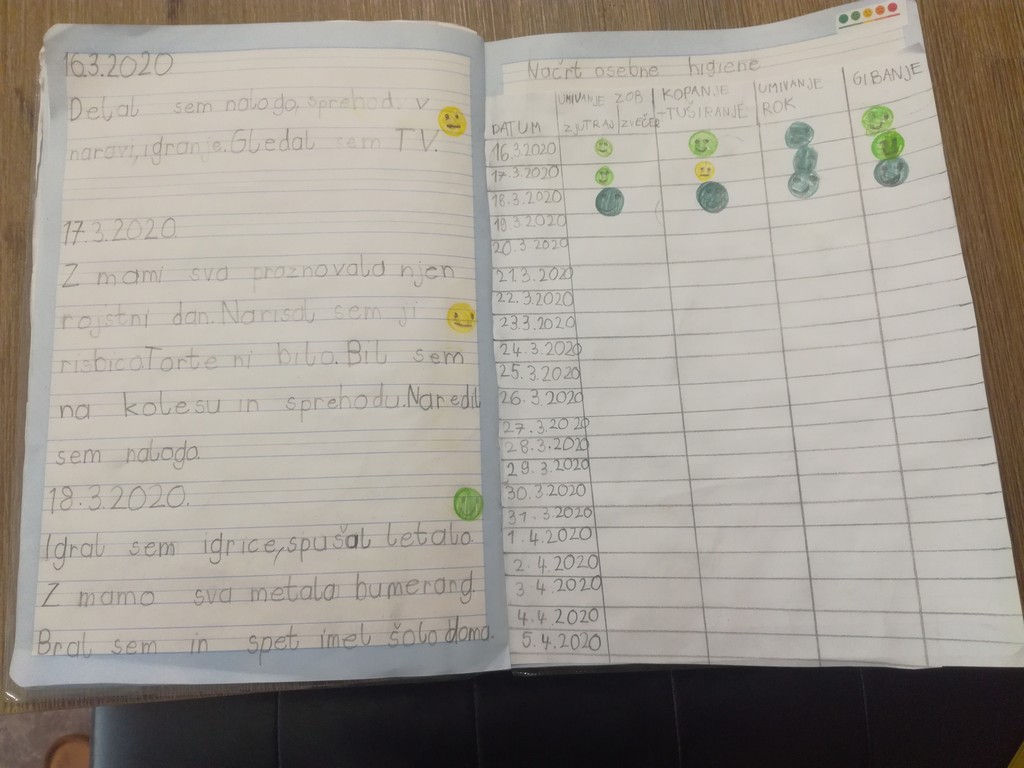 16.3.2020
Delal sem nalogo, sprehod v
naravi, igranje. Gledal sem TV.
17.3.2020
Z mami sva praznovala njen
rojstni dan. Narisal sem ji
risbico Torte ni bilo. Bil sem
na kolesu in sprehodu. Naredil
sem nalogo.
18.3.2020.
Igral sem igrice, spušal letalo
Z mamo sva metala bumerang
Bral sem in spet imel šolo doma.
Načrt osebne higiene
DATUM UMIVANJE ZOB ZJUTRAJ ZVEČER KOPANJE -TUŠIRANJE UMIVANJE ROK GIBANJE
16.3.2020
17.3.2020
18.3.2020
19.3.2020
20.3.2020
21.3.2020
22.3.2020
23.3.2020
24.3.2020
25.3.2020
26.3.2020
27.3.2020
28.3.2020
29.3.2020
30.3.2020
31.3.2020
1.4.2020
2.4.2020
3.4.2020
4.4.2020
5.4.2020